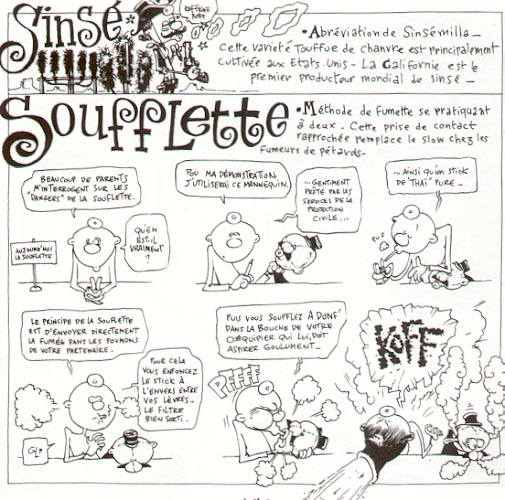 Sinsé
OFTEUFF
KOFF
• Abréviation de Sinsémilla _
Cette variété Touffue de chanvre est principalement
cultivée aux Etats-Unis - La Californie est le
premier producteur mondial de sinsé _
Soufflette
• Méthode de fumette se pratiquant
à deux. Cette prise de contact
rapprochée remplace le slow chez les
fumeurs de pétards.
BEAUCOUP DE PARENTS
M'INTERROGENT SUR LES
"DANGERS" DE LA SOUFLETTE.
AUJOURD'HUI
LA SOUFLETTE
QU'EN
EST-IL
VRAIMENT
?
POU MA DÉMONSTRATION
J'UTILISERAI CE MANNEQUIN.
... GENTIMENT
PRÊTÉ PAR LES
SERVICES DE LA
PROTECTION
CIVILE ...
... AINSI QU'UN STICK
DE "THAÏ" PURE _
FUF
LE PRINCIPE DE LA SOUFLETTE
EST D'ENVOYER DIRECTEMENT
LA FUMÉE DANS LES POUMONS
DE VOTRE PARTENAIRE.
POUR CELA
VOUS ENFONCEZ
LE STICK À
L'ENVERS ENTRE
VOS LÈVRES _
LE FILTRE
BIEN SORTI.
GLP
PUIS VOUS SOUFFLEZ A DONF'
DANS LA BOUCHE DE VOTRE
COéQUIPIER QUI LUI, DOIT
ASPIRER GOULUMENT _
PFFFF
KOFF